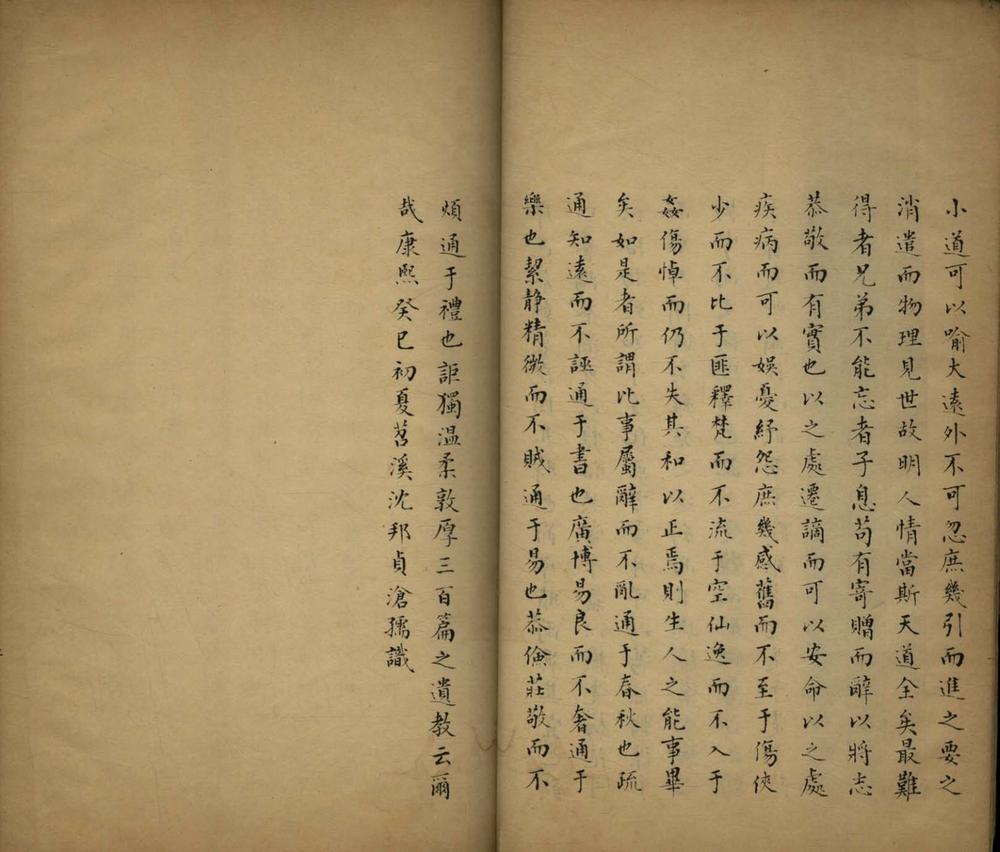 小道可以喻大遠外不可忽庶幾引而進之要之
消遣而物理見世故明人情當斯天道全矣最難
得者兄弟不能忘者子息苟有寄贈而辭以將志
恭敬而有實也以之處遷謫而可以安命以之處
疾病而可以娛憂紓怨庶幾感舊而不至于傷俠
少而不比于匪釋梵而不流于空仙逸而不入于
姦傷悼而仍不失其和以正焉則生人之能事畢
矣如是者所謂比事屬辭而不亂通于春秋也疏
通知遠而不誣通于書也廣博易良而不奢通于
樂也絜静精微而不賊通于易也恭儉莊敬而不
煩通于禮也詎獨溫柔敦厚三百篇之遺教云爾
哉康熙癸巳初夏苕溪沈邦貞滄孺識